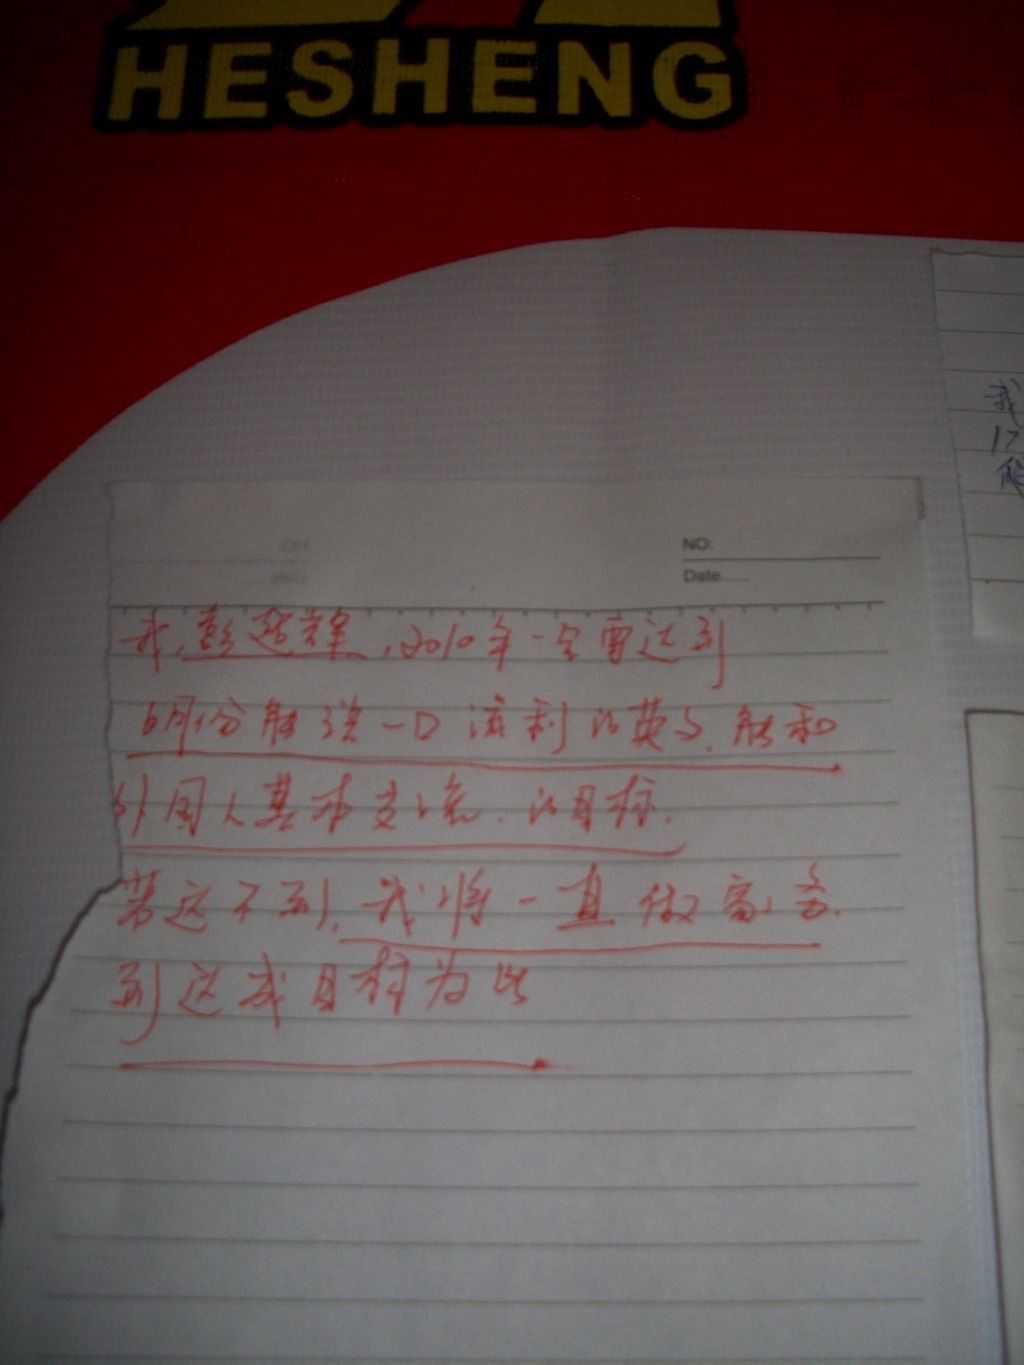 HESHENG
NO:
Date
我,彭,2010年一定要达到
6月份能说一口流利的英文,能和
外国人基本交流.的目标.
若达不到,我将一直做家务
到达成目标为止
我
17
能